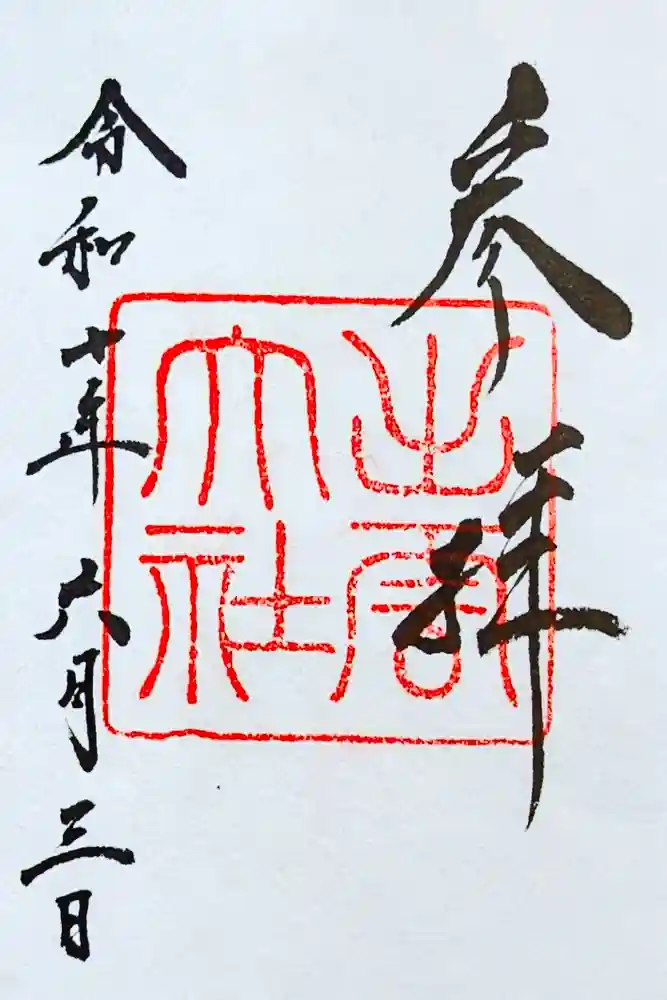 参拝
出雲
大社
令和年六月三日